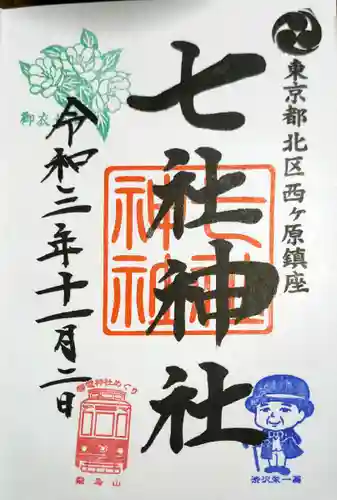 東京都北区西ヶ原鎮座
七社神社
七社神社
令和三年十一月二日
御衣
神社めぐり
飛鳥山
渋沢栄一翁